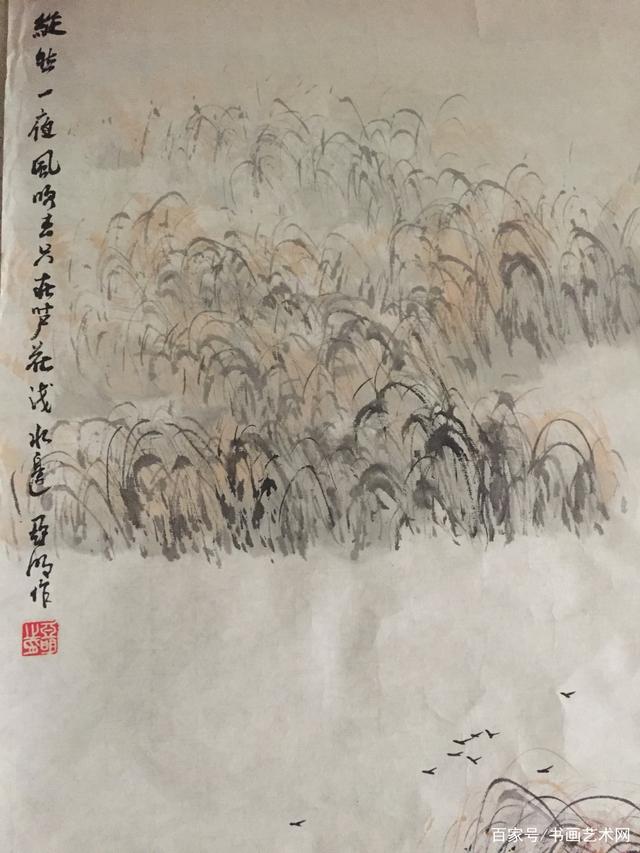 縱然一夜風吹去只在芦花浅水邊 亞明作
亚明
百家号/书画艺术网